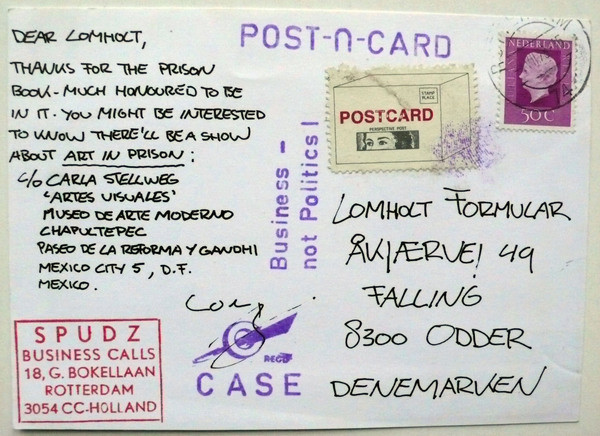 DEAR LOMHOLT,
THANKS FOR THE PRISON
BOOK - MUCH HONOURED TO BE
IN IT. YOU MIGHT BE INTERESTED
TO KNOW THERE'LL BE A SHOW
ABOUT ART IN PRISON:
C/O CARLA STELLWEG
'ARTES VISUALES'
MUSEO DE ARTE MODERNO
CHAPULTEPEC
PASEO DE LA REFORMA Y GANDHI
MEXICO CITY 5, D.F.
MEXICO.
SPUDZ
BUSINESS CALLS
18, G. BOKELLAAN
ROTTERDAM
3054 CC-HOLLAND
POST-n-CARD
Business -
not Politics!
REGD
CASE
STAMP
PLACE
POSTCARD
PERSPECTIVE POST
NEDERLAND
50C
LOMHOLT FORMULAR
ÅKJÆRVEJ 49
FALLING
8300 ODDER
DENEMARKEN